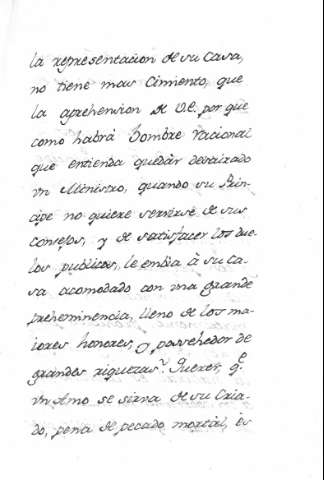 la representacion de su Casa,
no tiene mas Cimiento, que
la aprehension de V.E. por que
como habrá hombre racional
que entienda quedar desairado
un Ministro, quando su Prin-
cipe no quiere servirse de sus
consejos, y de satisfacer los due-
los publicos, le embia à su Ca-
sa acomodado con una grande
preheminencia, lleno de los ma-
iores honores, y poseehedor de
grandes riquezas? Querer, q.e
un Amo se sirva de su Cria-
do, pena de pecado mortal, es